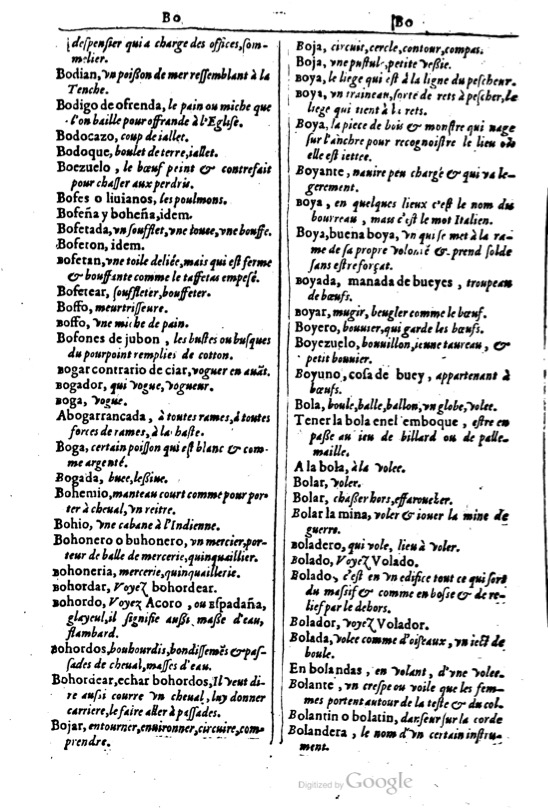 Bo
despensier qui a charge des offices, som-
melier.
Bodian, vn poisson de mer ressemblant à la
Tenche.
Bodigo de ofrenda, le pain ou miche que
l'on baille pour offrande à l'Eglise.
Bodocazo, coup de iallet.
Bodoque, boulet de terre, iallet.
Boezuelo, le bœuf peint & contrefait
pour chasser aux perdris.
Bofes o liuianos, les poulmons.
Bofeña y boheña, idem.
Bofetada, vn soufflet, vne ioue, vne bouffe.
Boferon, idem.
Bofetan, vne toile deliée, mais qui est ferme
& bouffante comme le taffetas empesé.
Bofetear, souffleter, bouffeter.
Boffo, meurtrisseure.
Boffo, vne miche de pain.
Bofones de jubon, les bustes ou busques
du pourpoint remplies de cotton.
Bogar contrario de ciar, voguer en auāt.
Bogador, qui vogue, vogueur.
Boga, vogue.
Abogarrancada, à toutes rames, à toutes
forces de rames, à la haste.
Boga, certain poisson qui est blanc & com-
me argenté.
Bogada, buee, lessiue.
Bohemio, manteau court comme pour por-
ter à cheual, vn reitre.
Bohio, vne cabane à l'Indienne.
Bohonero o buhonero, vn mercier, por-
teur de balle de mercerie, quinquaillier.
Bohoneria, mercerie, quinquaillerie.
Bohordar, Voyez bohordear.
Bohordo, Voyez Acoro, ou Espadaña,
glayeul, il signifie aussi masse d'eau,
flambard.
Bohordos, bouhourdis, bondissemēs & pas-
sades de cheual, masses d'eau.
Bohordear, echar bohordos, Il veut di-
re aussi courre vn cheual, luy donner
carriere, le faire aller à passades.
Bojar, entourner, enuironner, circuire, com-
prendre.
Bo
Boja, circuit, cercle, contour, compas.
Boja, vne pustul, petite vessie.
Boya, le liege qui est à la ligne du pescheur.
Boya, vn traineau, sorte de rets à pescher, le
liege qui tient à ls rets.
Boya, la piece de bois & monstre qui nage
sur l'anchre pour recognoistre le lieu où
elle est iettee.
Boyante, nauire peu chargé & qui va le-
gerement.
Boya, en quelques lieux c'est le nom du
bourreau, mais c'est le mot Italien.
Boya, buena boya, vn qui se met à la ra-
me de sa propre volonté & prend solde
sans estre forçat.
Boyada, manada de bueyes, troupeau
de bœufs.
Boyar, mugir, beugler comme le bœuf.
Boyero, bouuier, qui garde les bœufs.
Boyezuelo, bouuillon, ieune taureau, &
petit bouuier.
Boyuno, cosa de buey, appartenant à
bœufs.
Bola, boule, balle, ballon, vn globe, volee.
Tener la bola en el emboque, estre en
passe au ieu de billard ou de palle-
maille.
A la bola, à la volee.
Bolar, voler.
Bolar, chasser hors, effaroucher.
Bolar la mina, voler & iouer la mine de
guerre.
Boladero, qui vole, lieu à voler.
Bolado, Voyez Volado.
Bolado, c'est en vn edifice tout ce qui sort
du massif & comme en bosse & de re-
lief par le dehors.
Bolador, voyez Volador.
Bolada, volee comme d'oiseaux, vn iect de
boule.
En bolandas, en volant, d'vne volee.
Bolante, vn crespe ou voile que les fem-
mes portent autour de la teste & du col.
Bolantin o bolatin, danseur sur la corde
Bolandera, le nom d'vn certain instru-
ment.
Digitized by Google